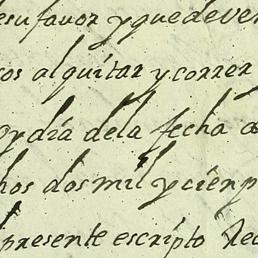 esu favor y que deven
cos al quitar y correr
oy dia de la fecha de
hos dos mil y cien p
presente escripto Rec